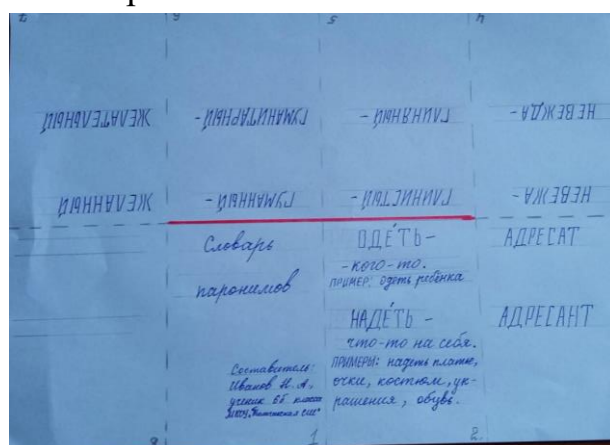 7
6
5
4
ЖЕЛАТЕЛЬНЫЙ
ГУМАНИТАРНЫЙ -
ГЛИНЯНЫЙ -
НЕВЕЖДА -
ЖЕЛАННЫЙ
ГУМАННЫЙ -
ГЛИНИСТЫЙ -
НЕВЕЖА -
Словарь
паронимов
Составитель:
Иванов И. А.,
ученик 6б класса
СШ"
1
ОДЕ́ТЬ -
- кого-то.
ПРИМЕР: одеть ребёнка
НАДЕ́ТЬ -
что-то на себя.
ПРИМЕРЫ: надеть платье,
очки, костюм, ук-
рашения, обувь.
2
АДРЕСАТ
АДРЕСАНТ
8